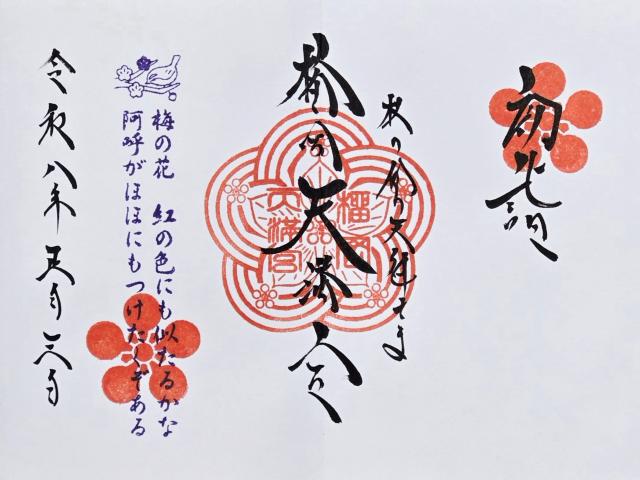 初詣
杜の都の天神さま
榴岡天満宮
榴岡
天満宮
梅の花 紅の色にも似たるかな
阿呼がほほにもつけたくぞある
令和八年正月三日